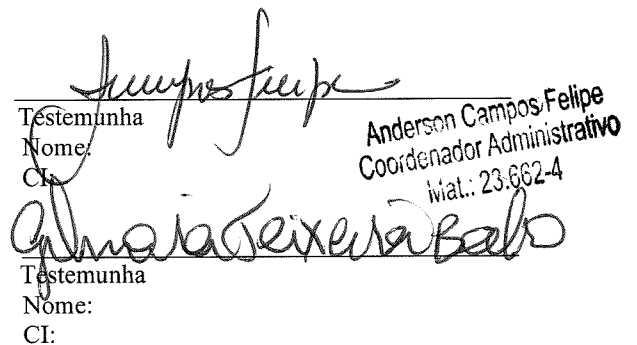 Campos Felipe
Testemunha
Nome:
CI:
Anderson Campos Felipe
Coordenador Administrativo
Mat.: 23.662-4
Teixeira
Testemunha
Nome:
CI: